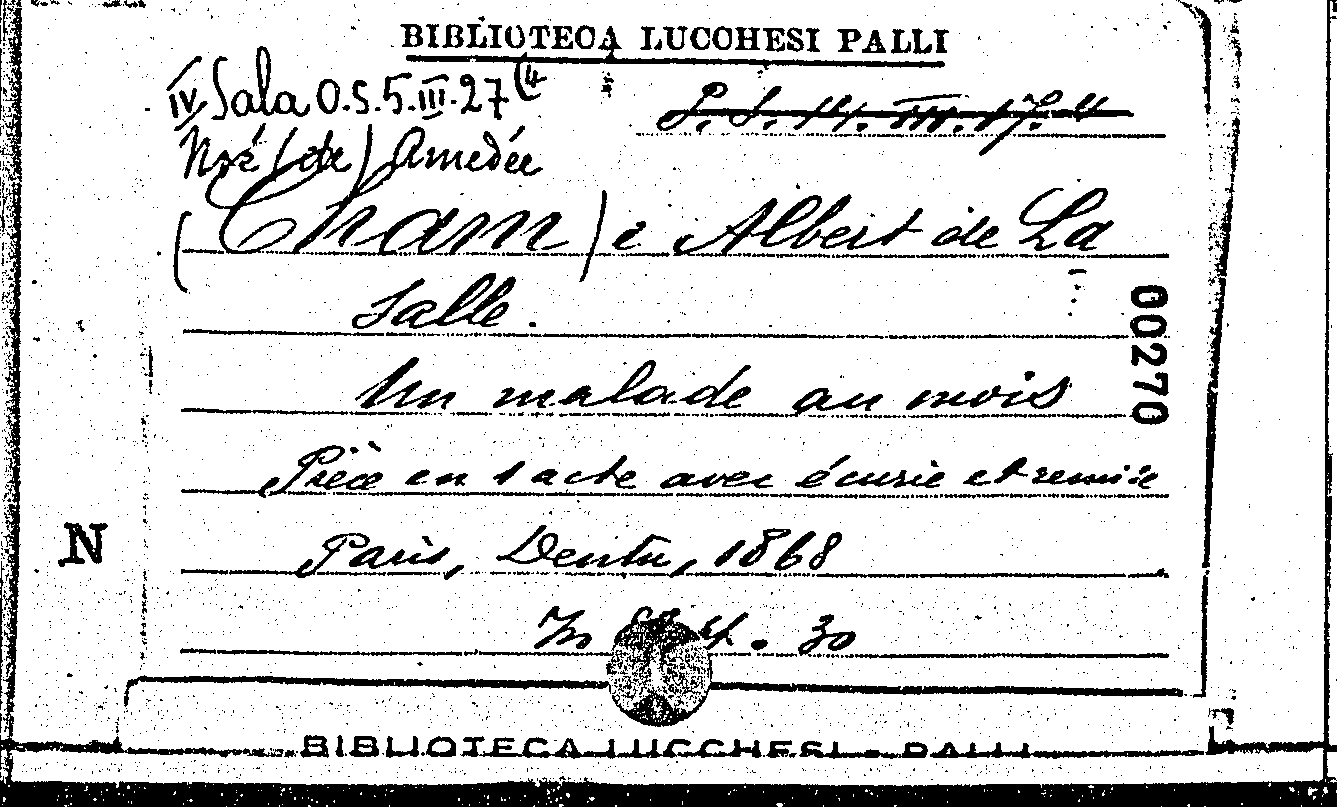 BIBLIOTECA LUCCHESI PALLI
IV Sala O.S.5.III.27(4
P. S. 14. III. 17.4
Noé (de) Amedée
(Cham) e Albert de La
Salle.
Un malade au mois
Pièce en 1 acte avec écurie et remise
Paris, Dentu, 1868
In 30
00270
N
BIBLIOTECA LUCCHESI - PALLI